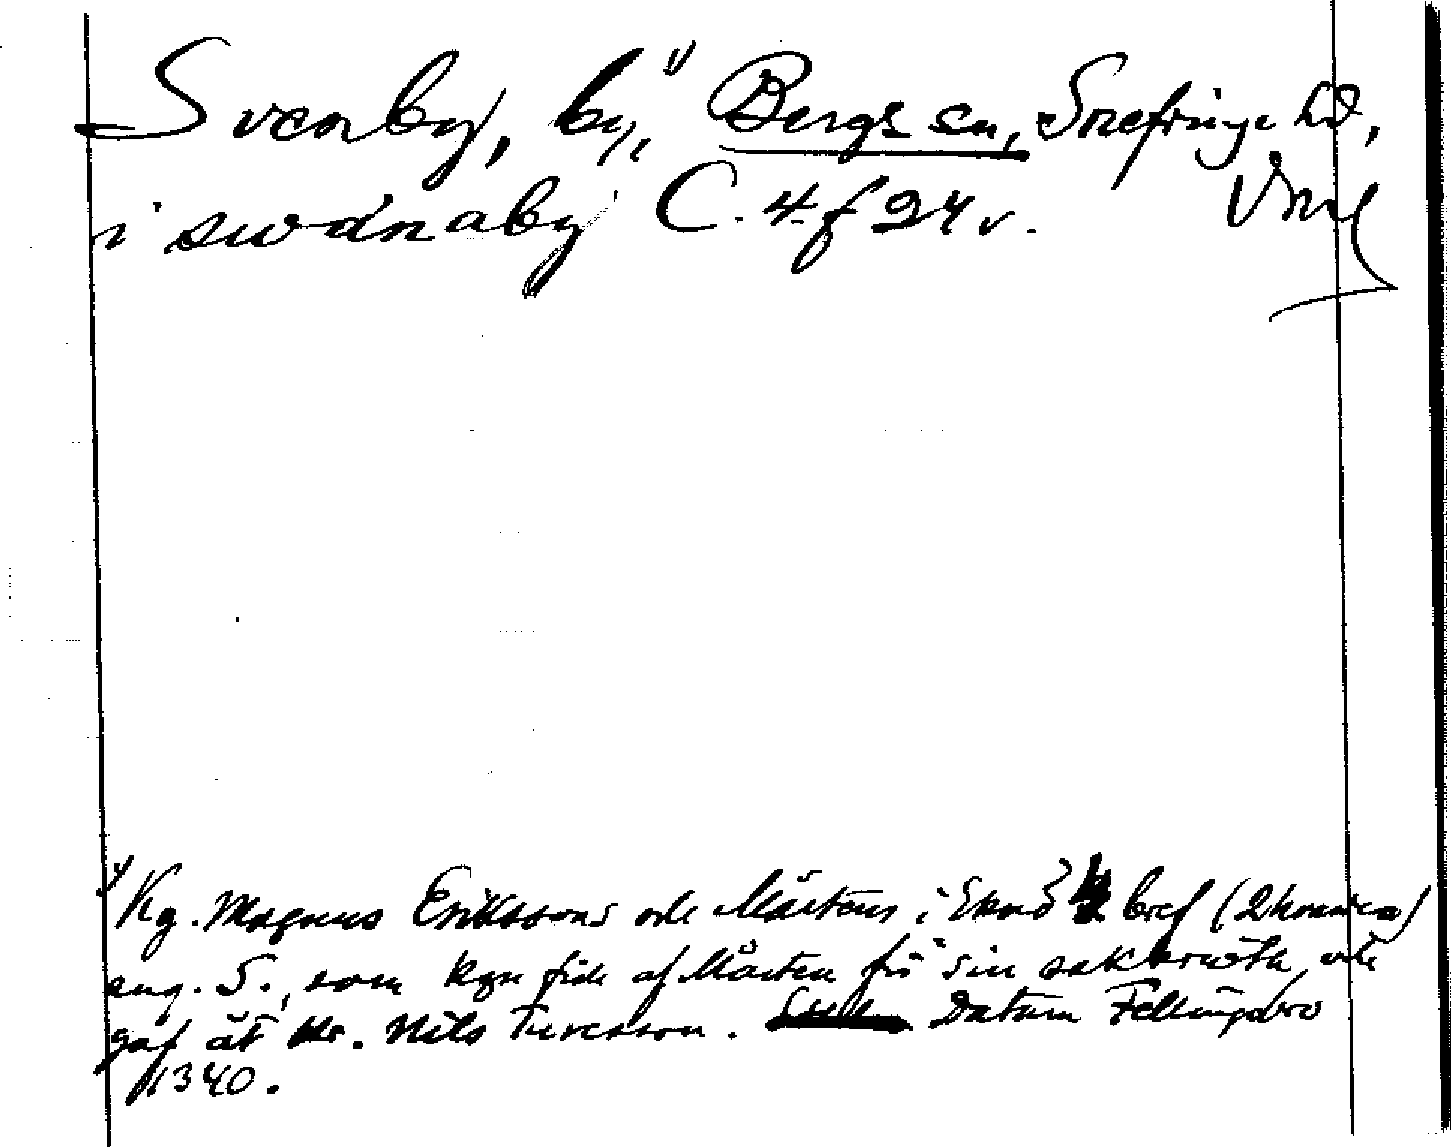 Svenby, by, 1) Bergs sn, Snefringe hd,
i swænaby C. 4 f 24 v. Vml
1) Kg. Magnus Erikssons och Mårtens i Ekeö bref (2 kronica)
ang. S., som kgn fick af Mårten för sin saköreswth och
gaf åt Hr. Nils Turesson. Datum Fellingsbro
1340.